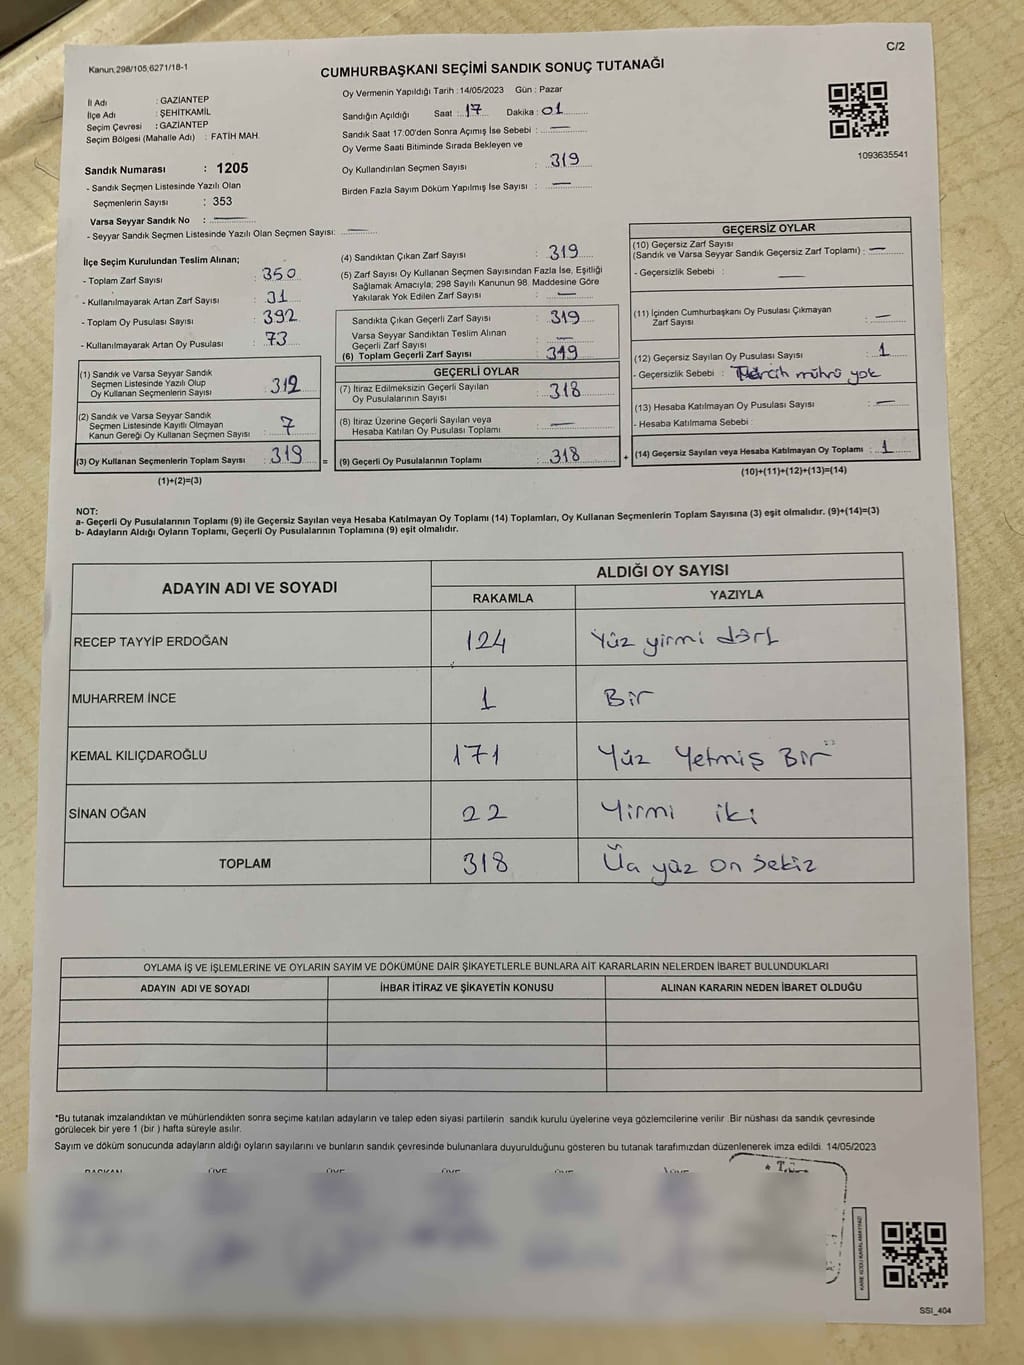 C/2
Kanun,298/105,6271/18-1
CUMHURBAŞKANI SEÇİMİ SANDIK SONUÇ TUTANAĞI
İl Adı : GAZİANTEP
İlçe Adı : ŞEHİTKAMİL
Seçim Çevresi : GAZİANTEP
Seçim Bölgesi (Mahalle Adı) : FATİH MAH.
Oy Vermenin Yapıldığı Tarih :14/05/2023 Gün : Pazar
Sandığın Açıldığı Saat : 17 Dakika : 01
Sandık Saat 17:00'den Sonra Açımış İse Sebebi : —
Oy Verme Saati Bitiminde Sırada Bekleyen ve
Oy Kullandırılan Seçmen Sayısı : 319
Birden Fazla Sayım Döküm Yapılmış İse Sayısı : —
1093635541
Sandık Numarası : 1205
- Sandık Seçmen Listesinde Yazılı Olan
Seçmenlerin Sayısı : 353
Varsa Seyyar Sandık No : —
- Seyyar Sandık Seçmen Listesinde Yazılı Olan Seçmen Sayısı: —
İlçe Seçim Kurulundan Teslim Alınan;
- Toplam Zarf Sayısı : 350
- Kullanılmayarak Artan Zarf Sayısı : 31
- Toplam Oy Pusulası Sayısı : 392
- Kullanılmayarak Artan Oy Pusulası : 73
(1) Sandık ve Varsa Seyyar Sandık
Seçmen Listesinde Yazılı Olup
Oy Kullanan Seçmenlerin Sayısı : 312
(2) Sandık ve Varsa Seyyar Sandık
Seçmen Listesinde Kayıtlı Olmayan
Kanun Gereği Oy Kullanan Seçmen Sayısı : 7
(3) Oy Kullanan Seçmenlerin Toplam Sayısı : 319
(1)+(2)=(3)
(4) Sandıktan Çıkan Zarf Sayısı : 319
(5) Zarf Sayısı Oy Kullanan Seçmen Sayısından Fazla İse, Eşitliği
Sağlamak Amacıyla; 298 Sayılı Kanunun 98. Maddesine Göre
Yakılarak Yok Edilen Zarf Sayısı : —
Sandıkta Çıkan Geçerli Zarf Sayısı : 319
Varsa Seyyar Sandıktan Teslim Alınan
Geçerli Zarf Sayısı : —
(6) Toplam Geçerli Zarf Sayısı : 319
GEÇERLİ OYLAR
(7) İtiraz Edilmeksizin Geçerli Sayılan
Oy Pusulalarının Sayısı : 318
(8) İtiraz Üzerine Geçerli Sayılan veya
Hesaba Katılan Oy Pusulası Toplamı : —
= (9) Geçerli Oy Pusulalarının Toplamı : 318 +
GEÇERSİZ OYLAR
(10) Geçersiz Zarf Sayısı
(Sandık ve Varsa Seyyar Sandık Geçersiz Zarf Toplamı) : —
- Geçersizlik Sebebi : —
(11) İçinden Cumhurbaşkanı Oy Pusulası Çıkmayan
Zarf Sayısı : —
(12) Geçersiz Sayılan Oy Pusulası Sayısı : 1
- Geçersizlik Sebebi : Tercih mührü yok
(13) Hesaba Katılmayan Oy Pusulası Sayısı : —
- Hesaba Katılmama Sebebi :
(14) Geçersiz Sayılan veya Hesaba Katılmayan Oy Toplamı : 1
(10)+(11)+(12)+(13)=(14)
NOT:
a- Geçerli Oy Pusulalarının Toplamı (9) ile Geçersiz Sayılan veya Hesaba Katılmayan Oy Toplamı (14) Toplamları, Oy Kullanan Seçmenlerin Toplam Sayısına (3) eşit olmalıdır. (9)+(14)=(3)
b- Adayların Aldığı Oyların Toplamı, Geçerli Oy Pusulalarının Toplamına (9) eşit olmalıdır.
ADAYIN ADI VE SOYADI ALDIĞI OY SAYISI
RAKAMLA YAZIYLA
RECEP TAYYİP ERDOĞAN 124 Yüz yirmi dört
MUHARREM İNCE 1 Bir
KEMAL KILIÇDAROĞLU 171 Yüz Yetmiş Bir
SİNAN OĞAN 22 Yirmi iki
TOPLAM 318 Üç yüz on sekiz
OYLAMA İŞ VE İŞLEMLERİNE VE OYLARIN SAYIM VE DÖKÜMÜNE DAİR ŞİKAYETLERLE BUNLARA AİT KARARLARIN NELERDEN İBARET BULUNDUKLARI
ADAYIN ADI VE SOYADI İHBAR İTİRAZ VE ŞİKAYETİN KONUSU ALINAN KARARIN NEDEN İBARET OLDUĞU
*Bu tutanak imzalandıktan ve mühürlendikten sonra seçime katılan adayların ve talep eden siyasi partilerin sandık kurulu üyelerine veya gözlemcilerine verilir .Bir nüshası da sandık çevresinde
görülecek bir yere 1 (bir ) hafta süreyle asılır.
Sayım ve döküm sonucunda adayların aldığı oyların sayılarını ve bunların sandık çevresinde bulunanlara duyurulduğunu gösteren bu tutanak tarafımızdan düzenlenerek imza edildi. 14/05/2023
BAŞKAN ÜYE ÜYE ÜYE ÜYE ÜYE
KARE KODU KARALAMAYINIZ!
SSI_404